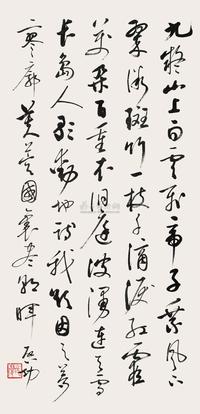 九嶷山上白雲飛帝子乘風下
翠微斑竹一枝千滴淚紅霞
萬朵百重衣洞庭波湧連天雪
長島人歌動地詩我欲因之夢
寥廓芙蓉國裏盡朝暉 啟功